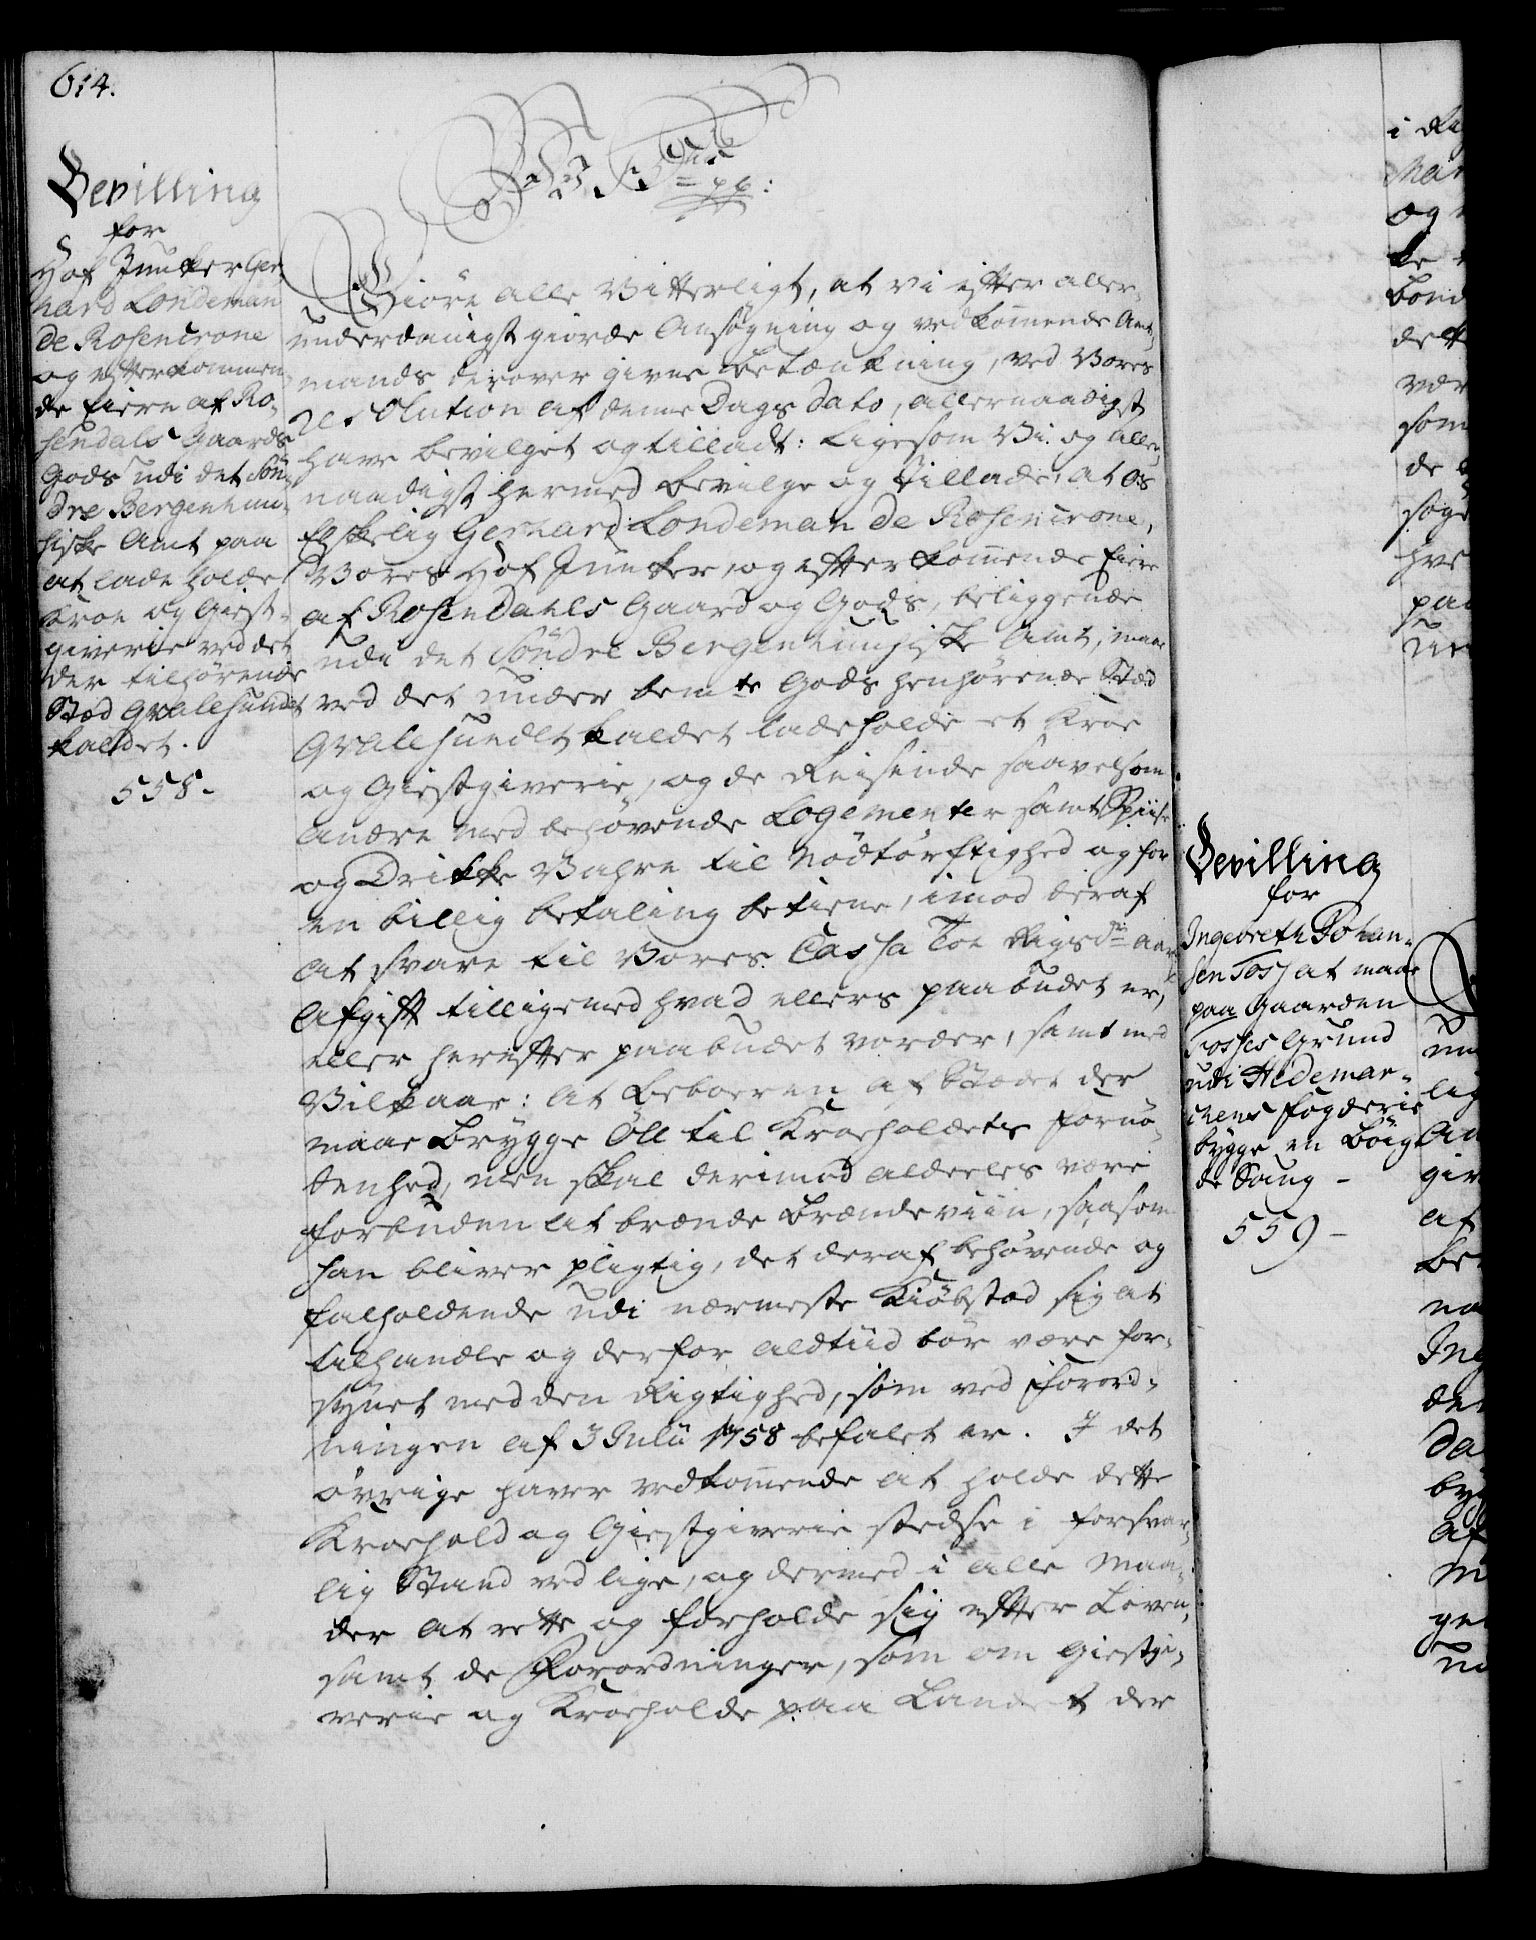 614.
Bevilling
for
Hof Junker Ger
hard Londeman
de Rosencrone
og efterkommen
de Eiere af Ro-
sendals Gaards
Gods udi det Søn-
dre Bergenhuu-
siske Amt paa
at lade holde
Kroe og Giest-
giverie ved det
der tilhørende
Stæd Gvalesundet
kaldet.
558.
Giöre alle Vitterligt, at vi efter aller-
underdanigst giorde Ansøgning og vedkommende Amt-
mands derover givne Betænkning, ved Vores
Resolution af denne Dags Dato, allernaadigst
have bevilget og tilladt: Ligesom Vi og aller-
naadigst hermed bevilge og Tillade, at Os
Elskelig Gerhard Londeman de Rosencrone,
Vores Hof Junker, og efterkommende Eiere
af Rosendahls Gaard og Gods, beliggende
udi det Söndre Bergenhuusiske Amt, maae
ved det under bemte Gods henhörende Stæd
Gvalesundet kaldet lade holde et Kroe
og Giestgiverie, og de Reisende saavelsom
andre med behövende Logementer samt Spiise
og Drikke Vahre til Nödtörftighed og for
en billig betaling betiene, imod deraf
at svare til Vores Cassa Toe Rigsdr aarl
Afgift tilligemed hvad ellers paabudet er,
eller herefter paabudet vorder, samt med
Vilkaar: at Beboeren af Stædet der
maae Brygge Öll til Kroeholdets fornö-
denhed, men skal derimod aldeeles være
forbuden at brænde Brændeviin, saasom
han bliver pligtig, det deraf behövende og
falholdende udi nærmeste Kiöbstad sig at
tilhandle og derfor altiid bör være for-
synet med den Rigtighed, som ved Forord-
ningen af 3 Julii 1758 befalet er. I det
övrige haver vedkommende at holde dette
Kroehold og Giestgiverie stedse i forsvar-
lig Stand ved lige, og dermed i alle Maa-
der at rette og forholde sig efter Loven,
samt de Forordninger, som om Giestgi-
verie og Kroeholde paa Landet der
Bevilling
for
Ingebreth Johan-
sen Foss at maae
paa Gaarden
Fosses Grund
udi Hedemar-
chens Fogderie
bygge en Böig-
de Saug -
559 -